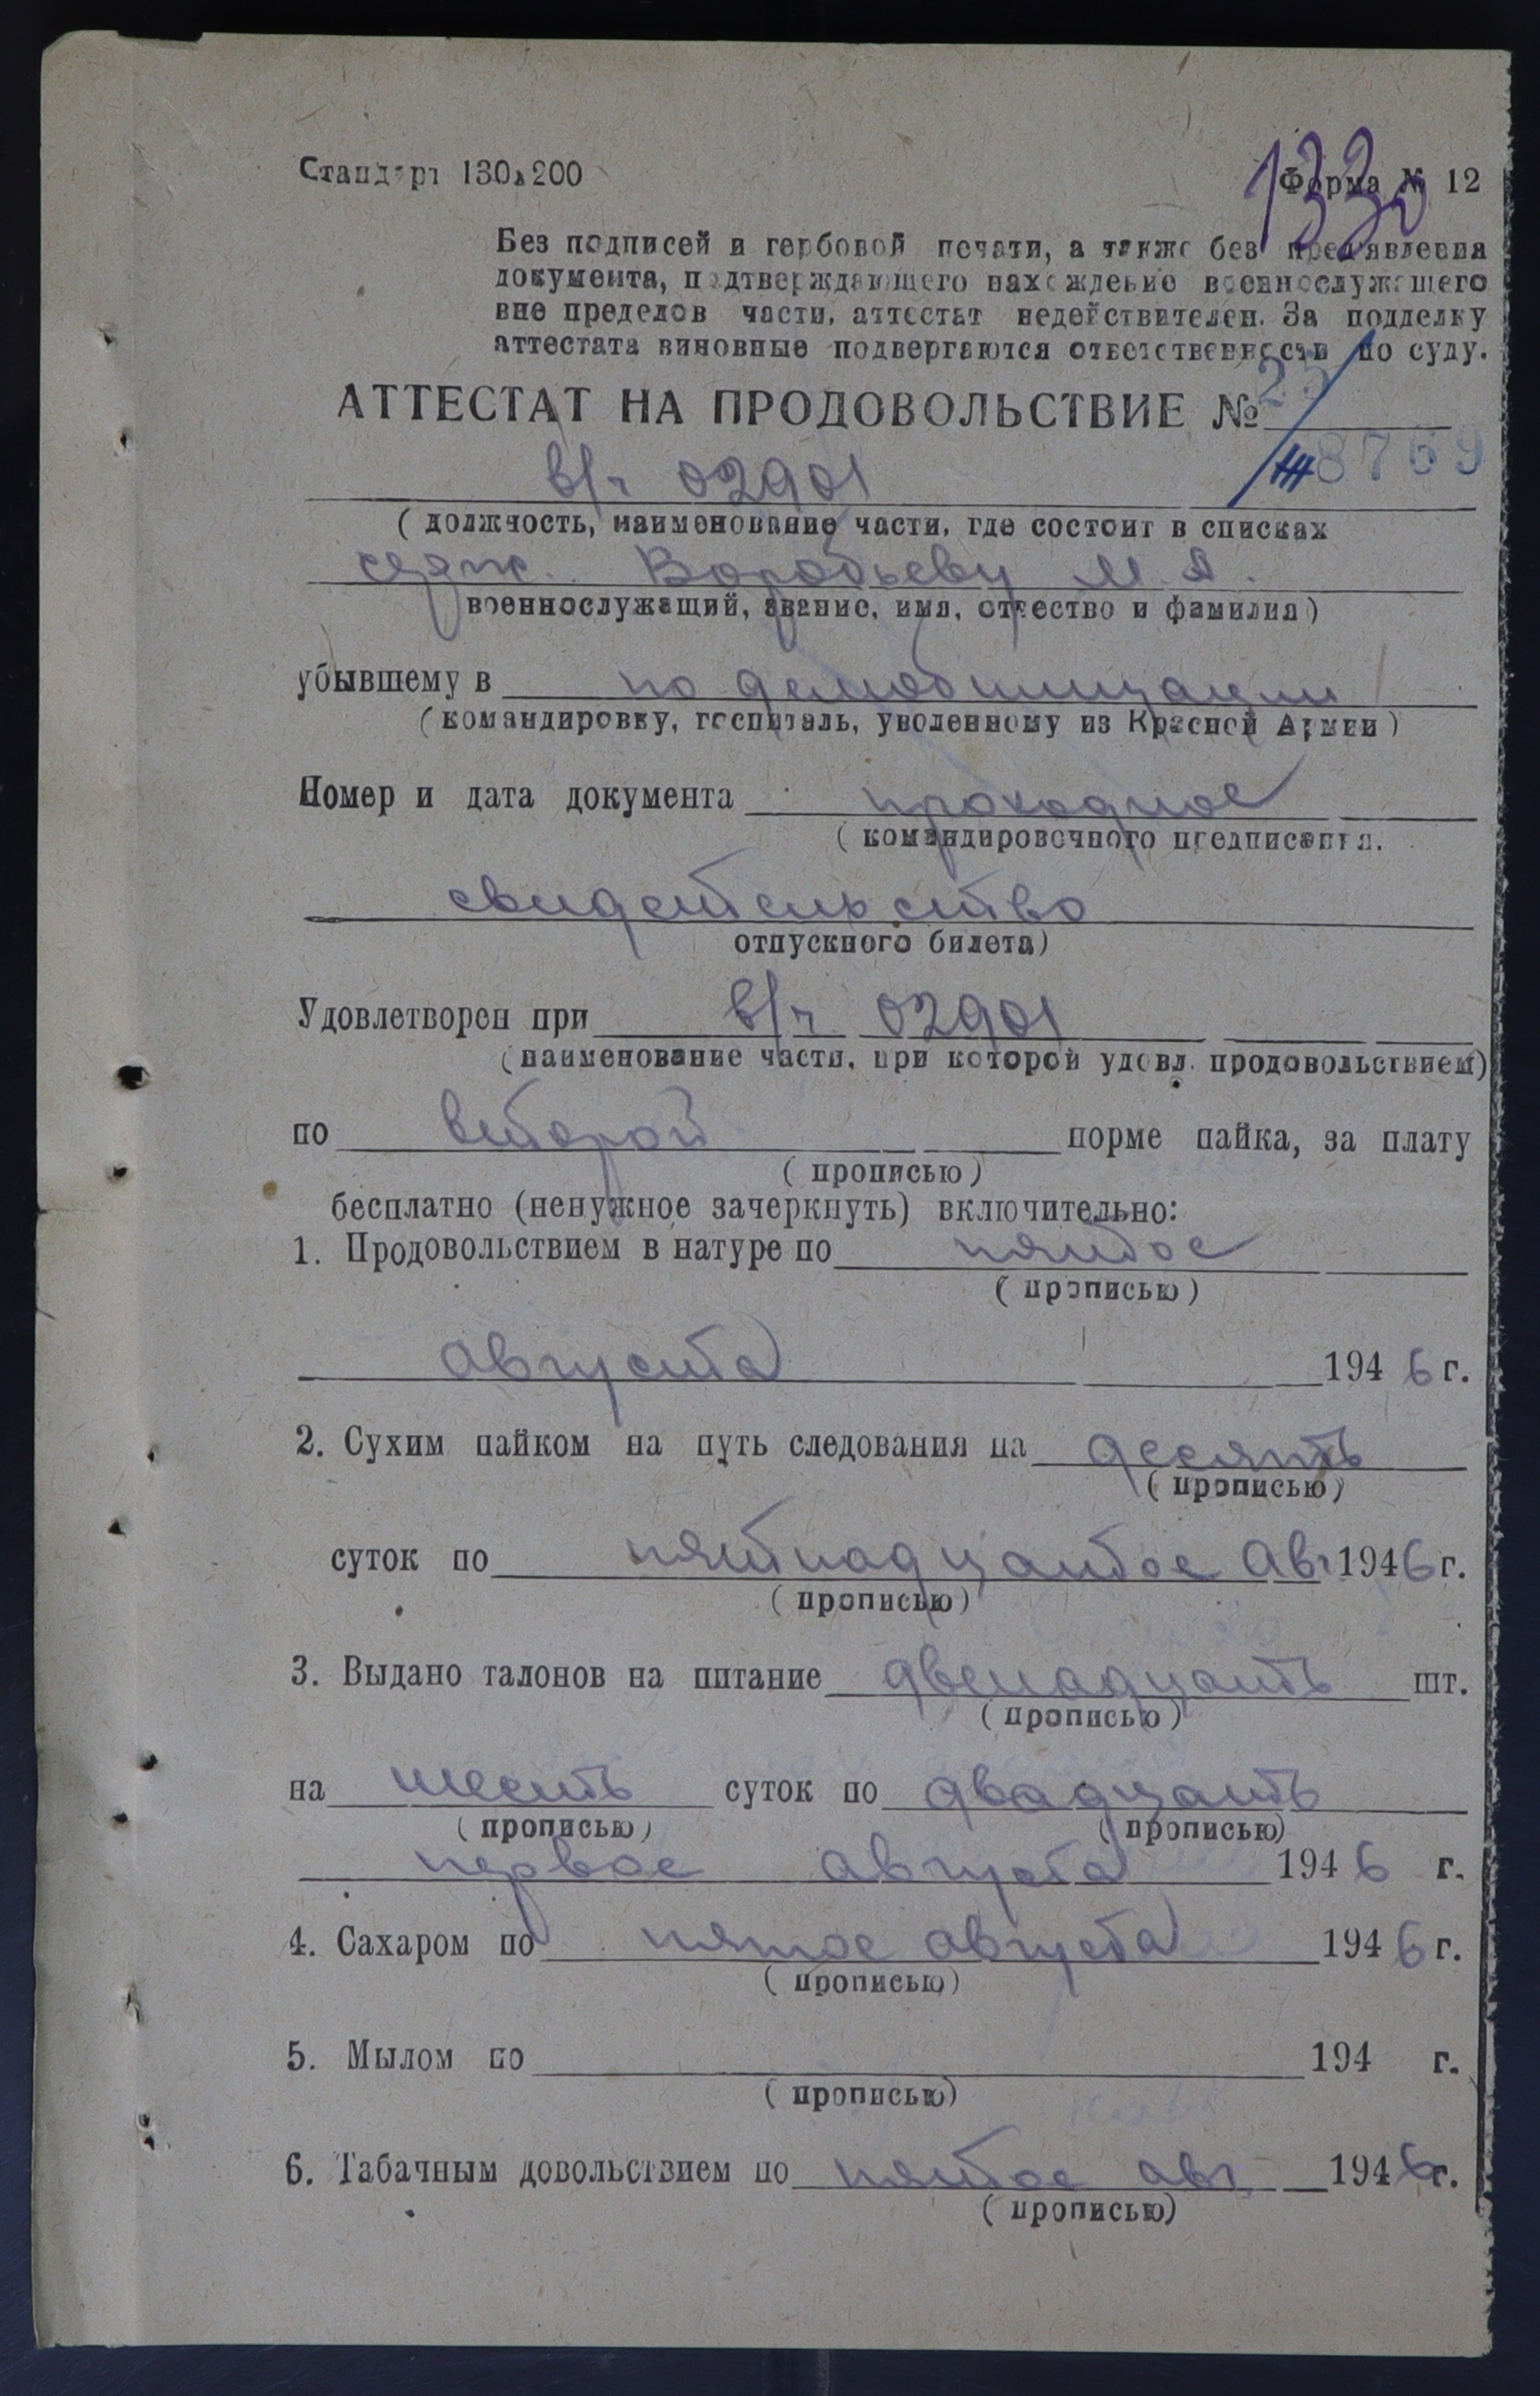 Стандарт 130х200
Форма № 12
133
Без подписей и гербовой печати, а также без предъявления
документа, подтверждающего нахождение военнослужащего
вне пределов части, аттестат недействителен. За подделку
аттестата виновные подвергаются ответственности по суду.
АТТЕСТАТ НА ПРОДОВОЛЬСТВИЕ № 25/
8769
в/ч 02901
( должность, наименование части, где состоит в списках
серж. Воробьеву М. Я.
военнослужащий, звание, имя, отчество и фамилия)
убывшему в по демобилизации
(командировку, госпиталь, уволенному из Красной Армии)
Номер и дата документа проходное
( командировочного предписания.
свидетельство
отпускного билета)
Удовлетворен при в/ч 02901
(наименование части, при которой удовл. продовольствием)
по второй норме пайка, за плату
( прописью )
бесплатно (ненужное зачеркнуть) включительно:
1. Продовольствием в натуре по пятое
( прописью )
августа 1946 г.
2. Сухим пайком на путь следования на десять
( прописью)
суток по пятнадцатое Авг 1946 г.
( прописью)
3. Выдано талонов на питание двенадцать шт.
( прописью )
на шесть суток по двадцать
( прописью) ( прописью)
первое августа 1946 г.
4. Сахаром по пятое августа 1946 г.
( прописью)
5. Мылом по 194 г.
( прописью)
6. Табачным довольствием по пятое авг. 1946 г.
( прописью)